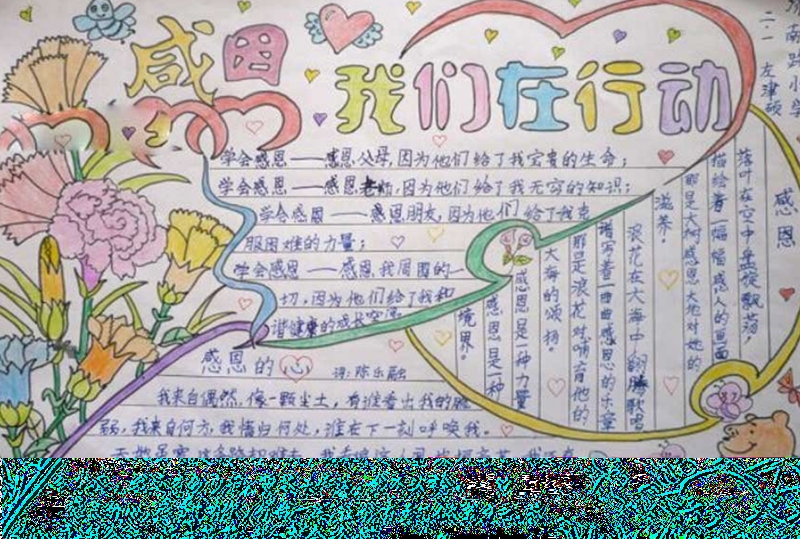 感恩
我们在行动
二.一 左津硕
学会感恩——感恩父母,因为他们给了我宝贵的生命;
学会感恩——感恩老师,因为他们给了我无穷的知识;
学会感恩——感恩朋友,因为他们给了我克
服困难的力量;
学会感恩——感恩我周围的一
切,因为他们给了我和
谐健康的成长空间
感恩的心
词:陈乐融
我来自偶然,像一颗尘土,有谁看出我的脆
弱,我来自何方,我情归何处,谁在下一刻呼唤我。
感恩
落叶在空中盘旋飘荡,
描绘着一幅幅感人的画面
那是大树感恩大地对她的
滋养。
浪花在大海中翻腾歌唱
谱写着一曲曲感恩的乐章
那是浪花对哺育他的
大海的颂扬。
感恩是一种力量
感恩是一种
境界。